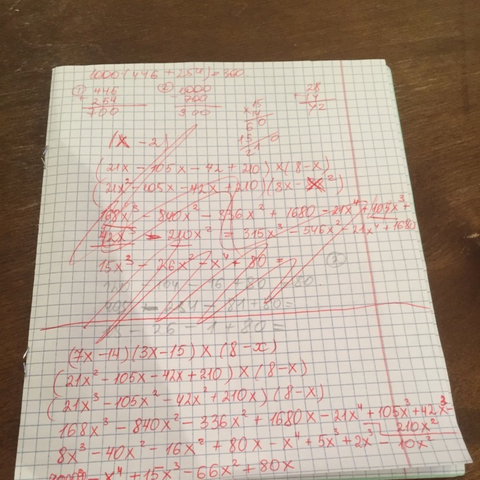 1000-(446+254)=300
1) 446
254
700
2) 1000
700
300
28
72
15
14
60
15
210
(x - 2)
(21x - 105x - 42 + 210) × (8-x)
(21x² - 105x - 42x + 210)(8x - x²)
168x³ - 840x² - 336x² + 1680 - 21x⁴ + 105x³ +
42x³ - 210x² = 315x³ - 546x² - 21x⁴ + 1680
15x³ - 26x² - x⁴ + 80 =
- 26 - 1 + 80 =
(7x - 14)(3x - 15) × (8 - x)
(21x² - 105x - 42x + 210) × (8 - x)
(21x³ - 105x² - 42x² + 210x)(8-x)
168x³ - 840x² - 336x² + 1680x - 21x⁴ + 105x³ + 42x³ -
210x²
8x³ - 40x² - 16x² + 80x - x⁴ + 5x³ + 2x³ - 10x²
- x⁴ + 15x³ - 66x² + 80x